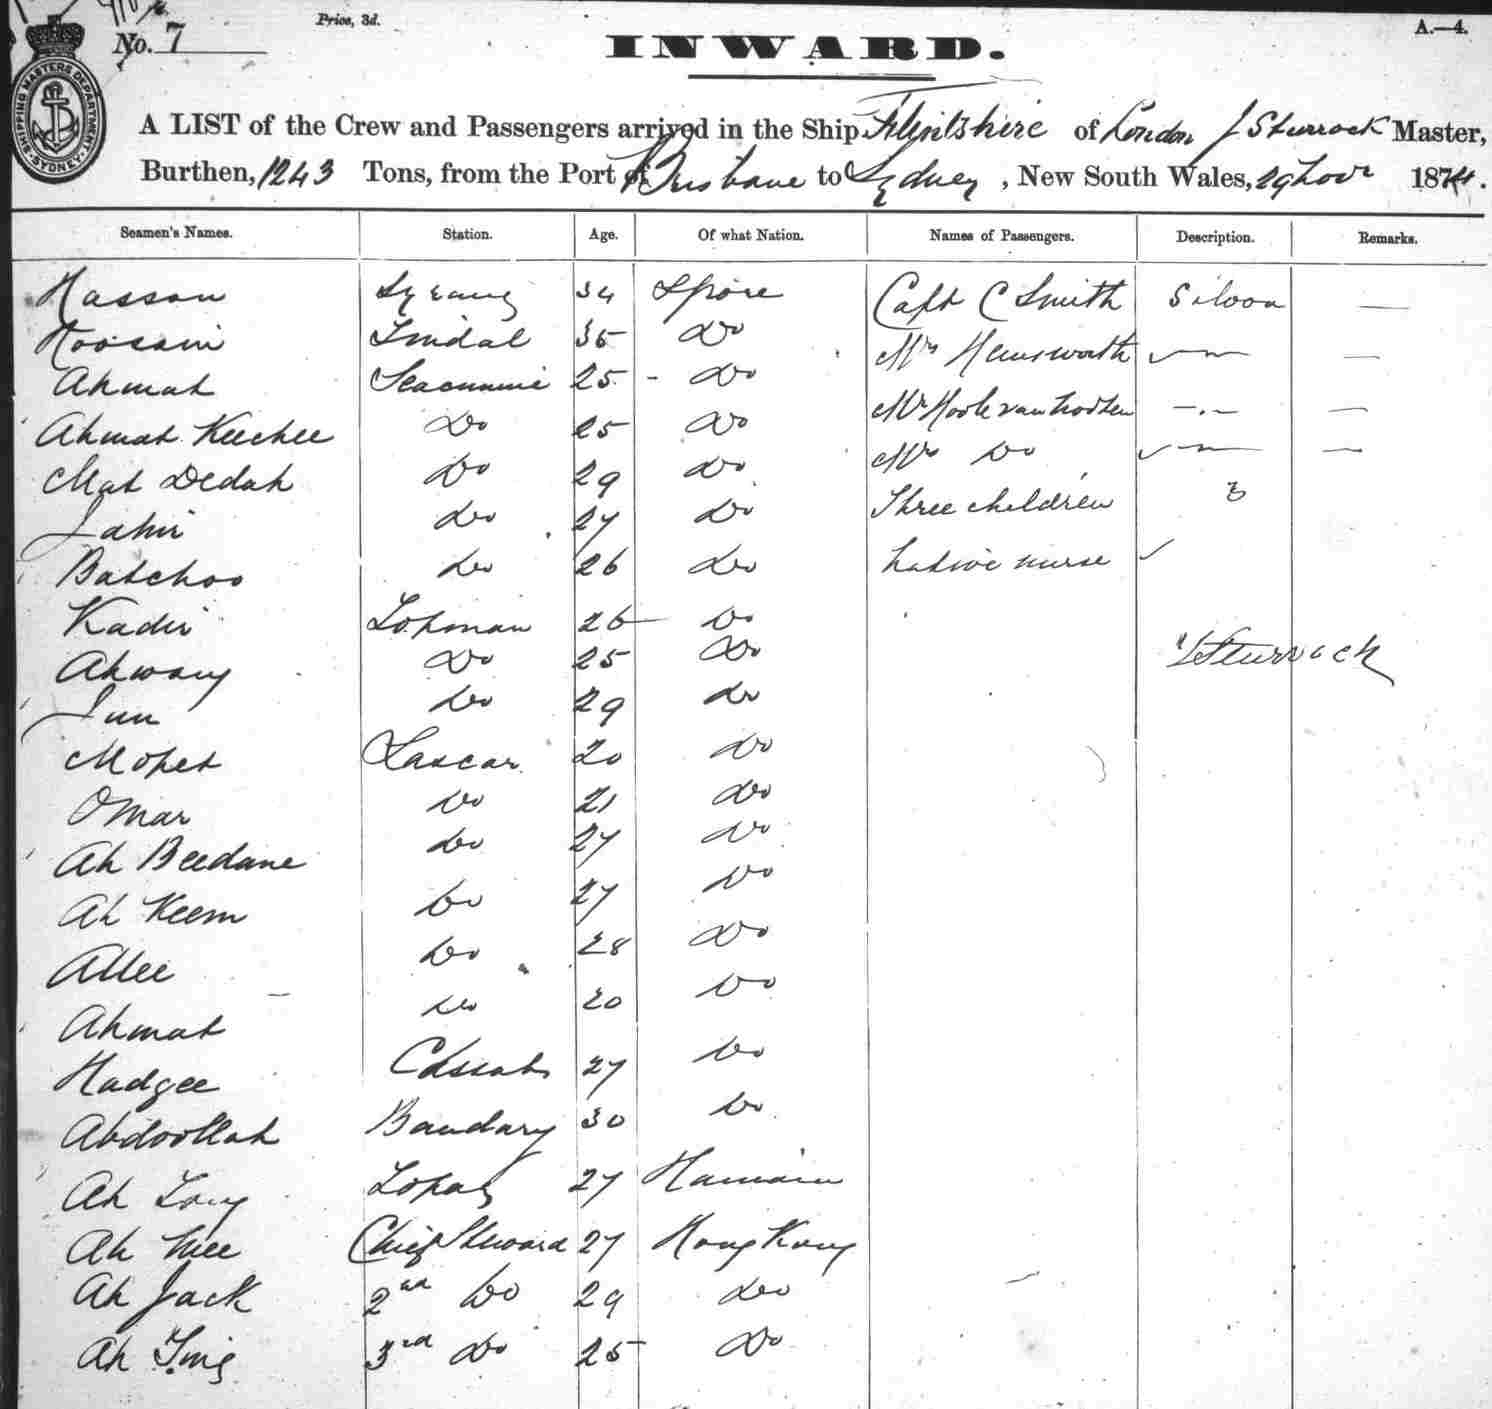 No. 7
Price, 3d.
A.—4.
INWARD.
SHIPPING MASTERS DEPARTMENT SYDNEY
A LIST of the Crew and Passengers arrived in the Ship Flintshire of London J Sturrock Master,
Burthen, 1243 Tons, from the Port of Brisbane to Sydney, New South Wales, 29 Novr 1874.
Seamen's Names. Station. Age. Of what Nation. Names of Passengers. Description. Remarks.
Hassan 34 Spore Capt C Smith Saloon —
Hoosain Tindal 35 Do Mrs Hemsworth —
Ahmat Seacunnie 25 Do
Mr
Ahmat Keechee Do 25 Do
Mrs Do —
Mat Dedah Do 29 Do
Three children 3
Jahir Do 27 Do
Batchoo Do 26 Do Native nurse
Kadir Topman 26 Do
Ahwang Do 25 Do J Sturrock
Do 29 Do
Mopet Lascar 20 Do
Omar Do 21 Do
Ah Beedane Do 27 Do
Ah Keem Do 27 Do
Allee Do 28 Do
Ahmat Do 20 Do
Hadgee Cassab 27 Do
Abdoollah Bandary 30 Do
Ah 27
Ah Mee Chief Steward 27 Hong Kong
Ah Jack 2nd Do 29 Do
Ah 3rd Do 25 Do